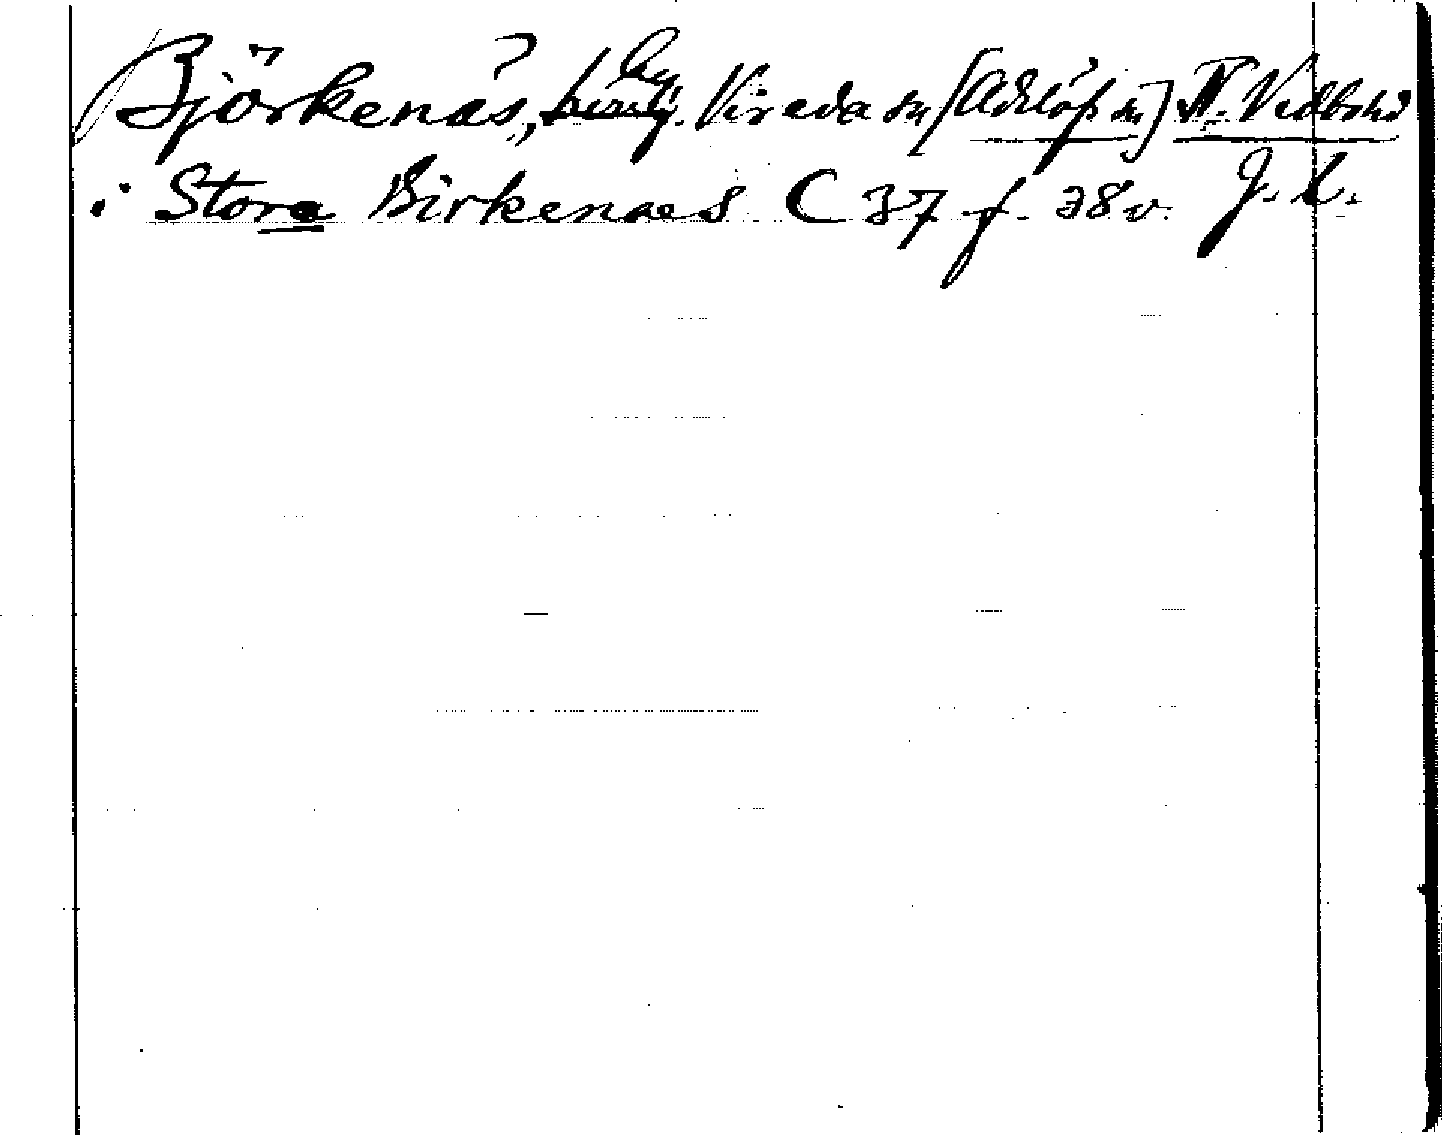 Björkenäs, by. Vireda sn [Adelöfs sn] N. Vedbo hd
i Stora Birkenaes C 37 f. 38v. J. l.